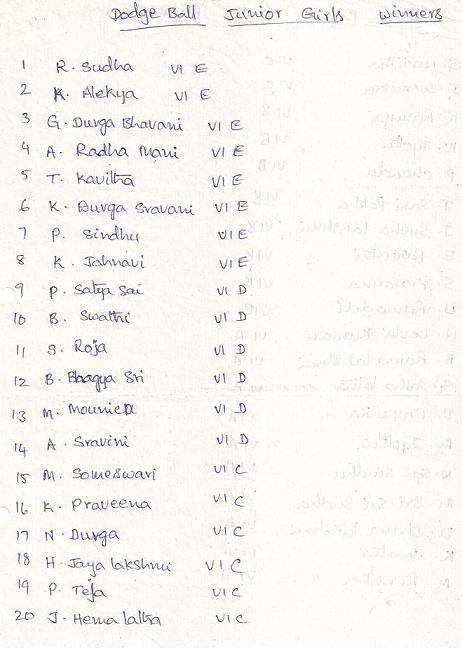 Dodge Ball Junior Girls Winners
1 R. Sudha VI E
2 K. Alekya VI E
3 G. Durga Bhavani VI E
4 A. Radha Mani VI E
5 T. Kavitha VI E
6 K. Durga Sravani VI E
7 P. Sindhu VI E
8 K. Jahnavi VI E
9 P. Satya Sai VI D
10 B. Swathi VI D
11 S. Roja VI D
12 B. Bhagya Sri VI D
13 M. VI D
14 A. Sravini VI D
15 M. Someswari VI C
16 K. Praveena VI C
17 N. Durga VI C
18 H. Jaya lakshmi VI C
19 P. Teja VI C
20 J. Hema latha VI C